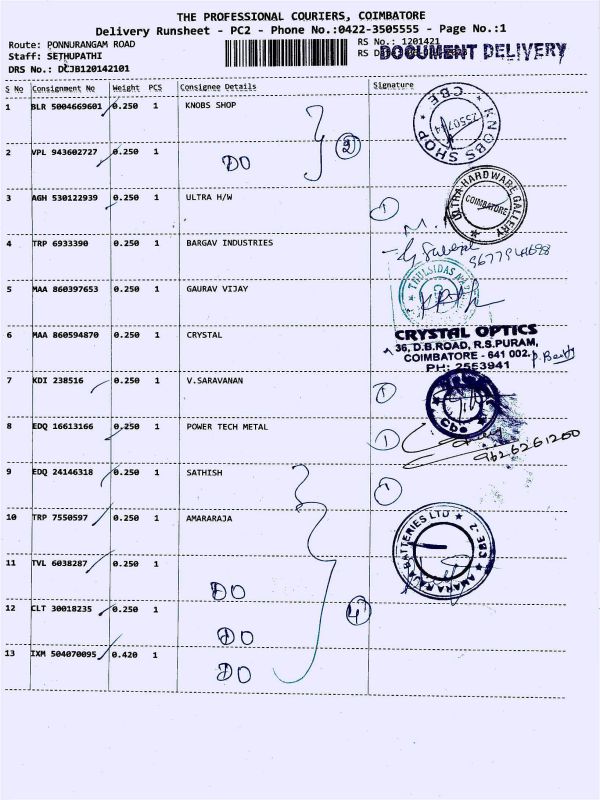 THE PROFESSIONAL COURIERS, COIMBATORE
Delivery Runsheet - PC2 - Phone No.:0422-3505555 - Page No.:1
Route: PONNURANGAM ROAD
RS No.: 1201421
Staff: SETHUPATHI
RS
DOCUMENT DELIVERY
DRS No.: DCJB120142101
S No Consignment No Weight PCS Consignee Details Signature
1 BLR 5004669601 0.250 1 KNOBS SHOP
KNOBS SHOP CBE
2 VPL 943602727 0.250 1
DO
2
3 AGH 530122939 0.250 1 ULTRA H/W
1
ULTRA HARDWARE GALLERY COIMBATORE
4 TRP 6933390 0.250 1 BARGAV INDUSTRIES
5 MAA 860397653 0.250 1 GAURAV VIJAY
THULSIDAS
6 MAA 860594870 0.250 1 CRYSTAL
CRYSTAL OPTICS
36, D.B.ROAD, R.S.PURAM,
COIMBATORE - 641 002.
PH: 2553941
7 KDI 238516 0.250 1 V.SARAVANAN
1
Cbe
8 EDQ 16613166 0.250 1 POWER TECH METAL
1
9626261200
9 EDQ 24146318 0.250 1 SATHISH
1
10 TRP 7550597 0.250 1 AMARARAJA
AMARARAJA BATTERIES LTD CBE-2
11 TVL 6038287 0.250 1
DO
12 CLT 30018235 0.250 1
DO
4
13 IXM 504070095 0.420 1
DO